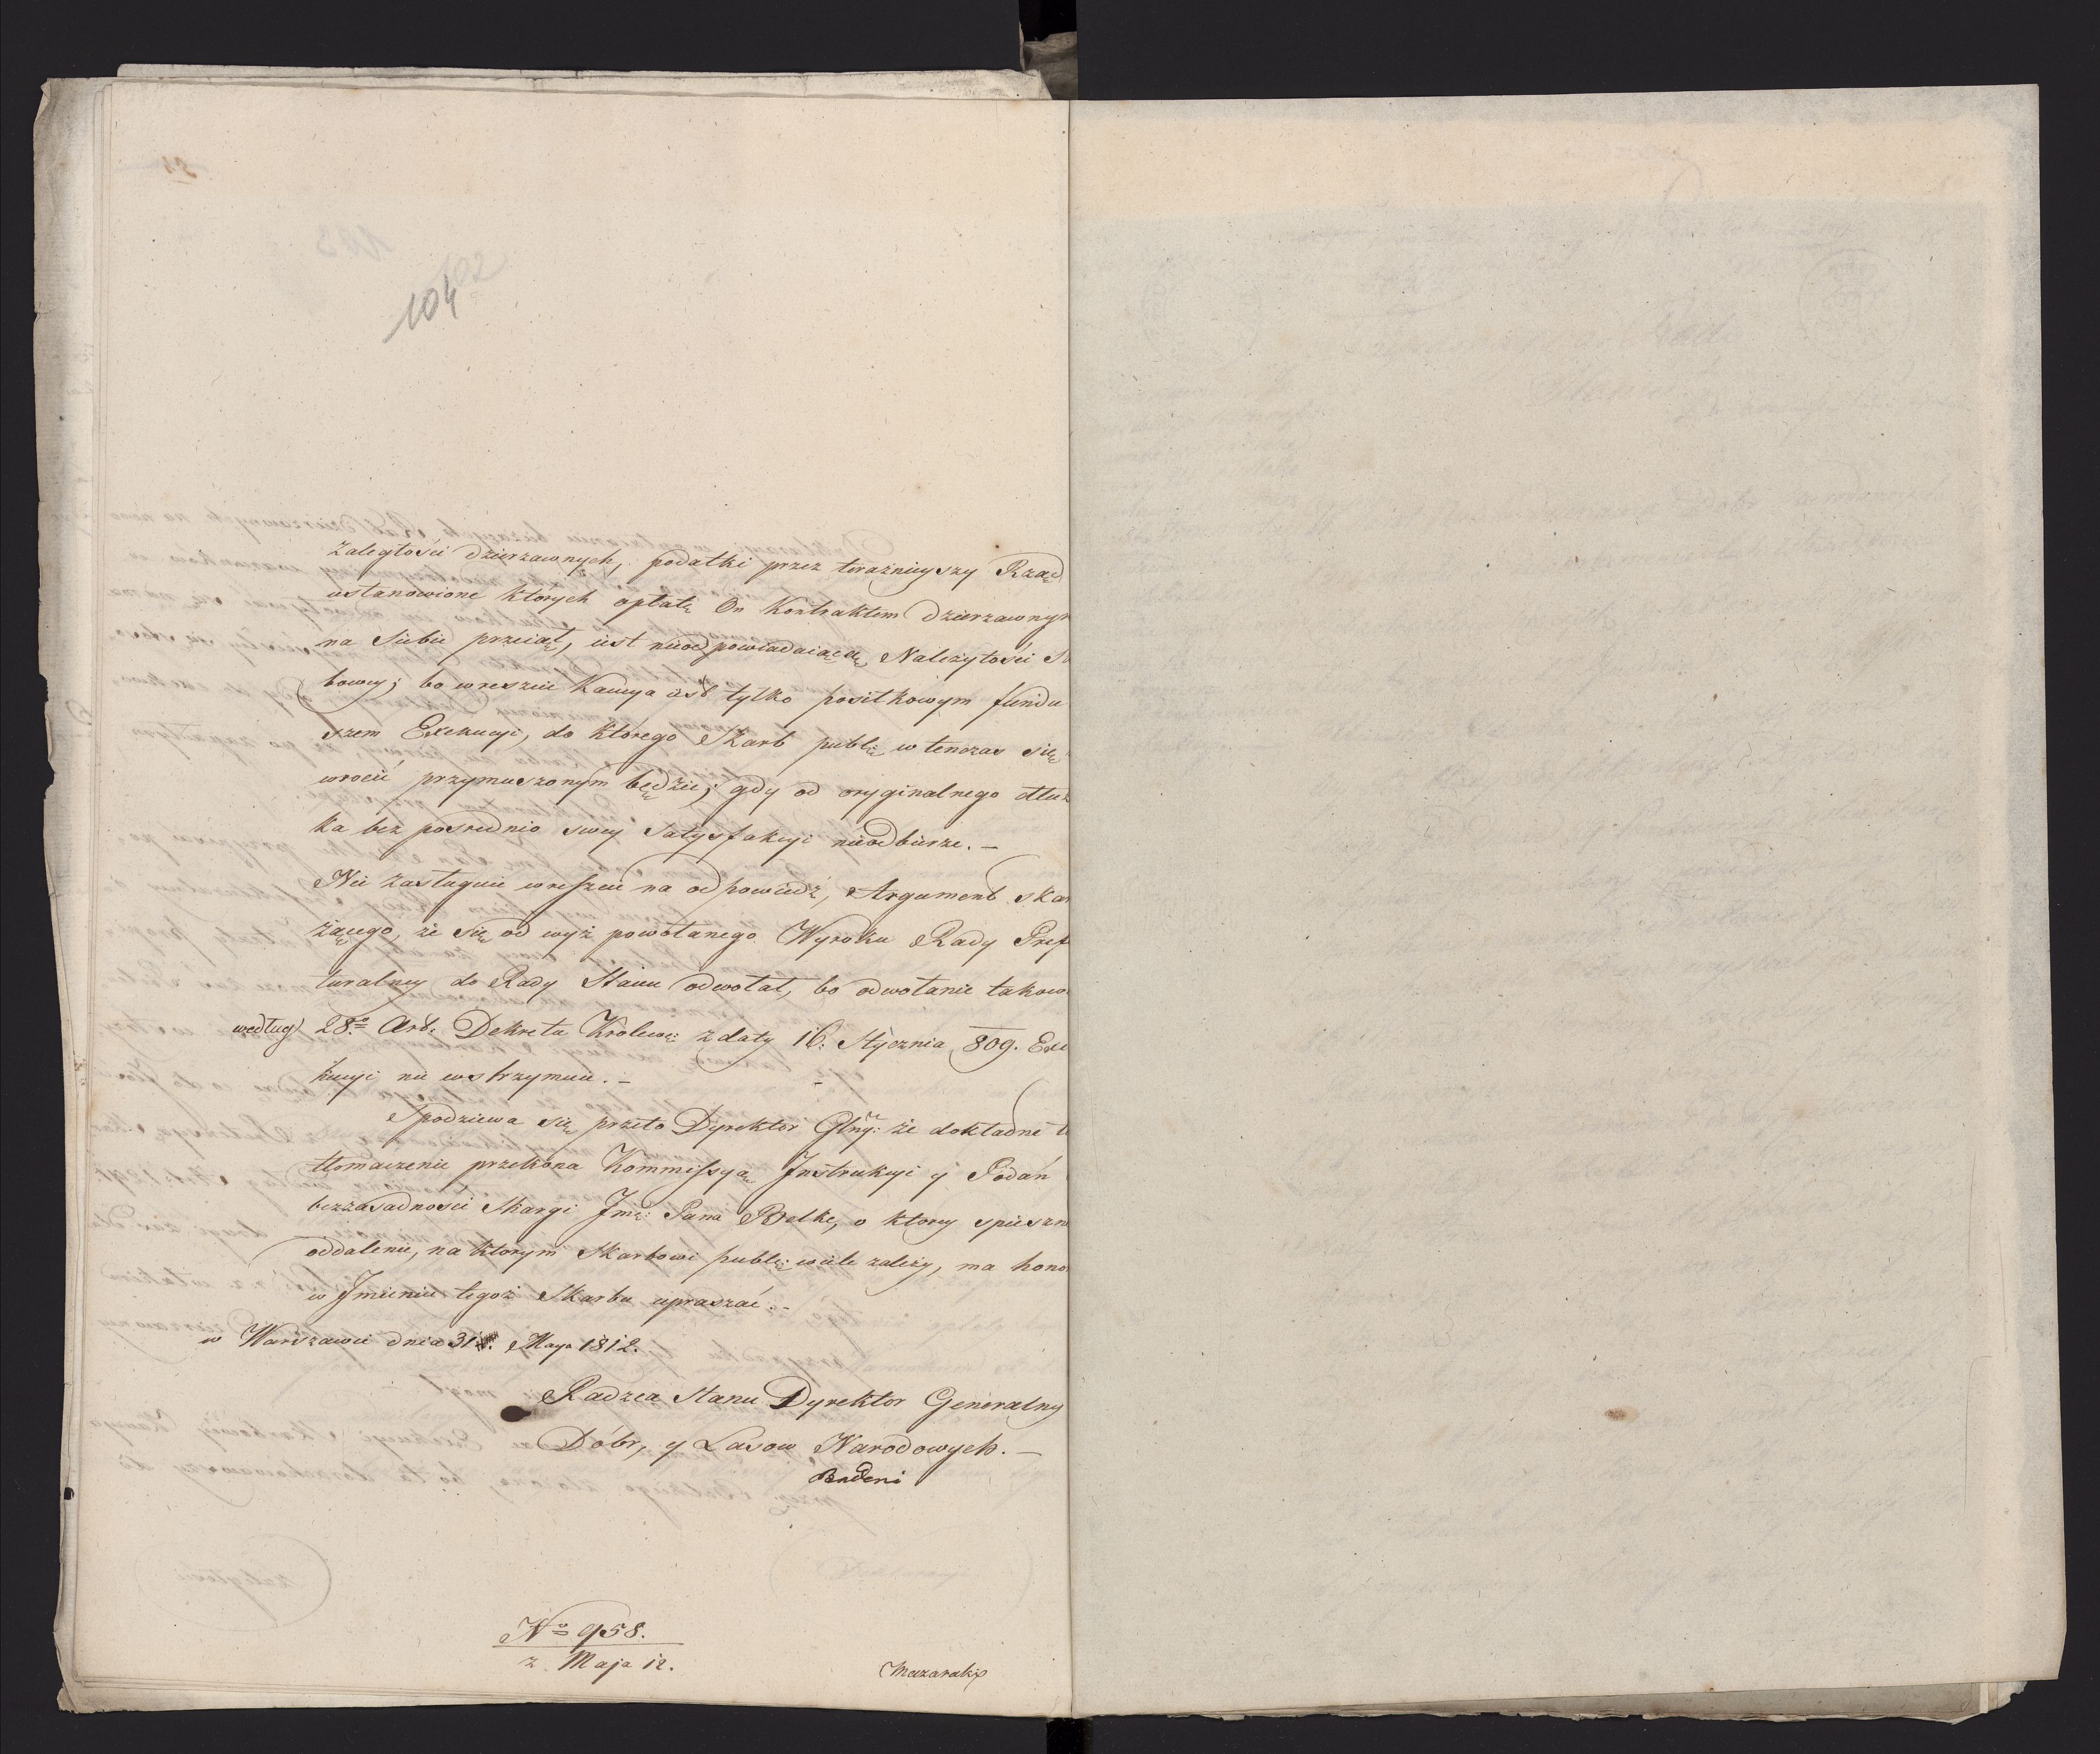 104
Zaległości dzierzawnych, podatki przez teraźnieyszy Rząd
ustanowione ktorych opłatę On Kontraktem dzierzawnym
na siebie przeiął, iest nieodpowiadaiącą Nalezytości
bowey; bo wreszcie Kaucya iest tylko positkowym fundu
szem Exekucyi, do ktorego Skarb publi: w tenczas się
wrocić przymuszonym będzie, gdy od oryginalnego dłuż
ka bez posrednio swey Satysfakcyi nieodbierze. —
Nie zasługuie wreszcie na odpowiedź, Argument skar
żącego, że się od wyż powołanego Wyroku Rady Pref
turalney do Rady Stanu odwołał, bo odwołanie takow
według 28º Art. Dekretu Krolew: z daty 16. Stycznia 809. Exe
kucyi nie wstrzymuie. —
Spodziewa się przeto Dyrektor Glny: że dokładne
tłomaczenie przekona Kommissyą Instrukcyi y Podań
bezzasadności Skargi Jmć: Pana Belke, o ktorey spieszne
oddalenie, na ktorym Skarbowi publi: wiele zależy, ma hono
w Jmieniu tegoż Skarbu upraszać. —
w Warszawie dnia 31. Maya 1812.
Radzca Stanu Dyrektor Generalny
Dóbr, y Lasow Narodowych. —
Badeni
Nº 958.
z Maja 12.
Mazaraki